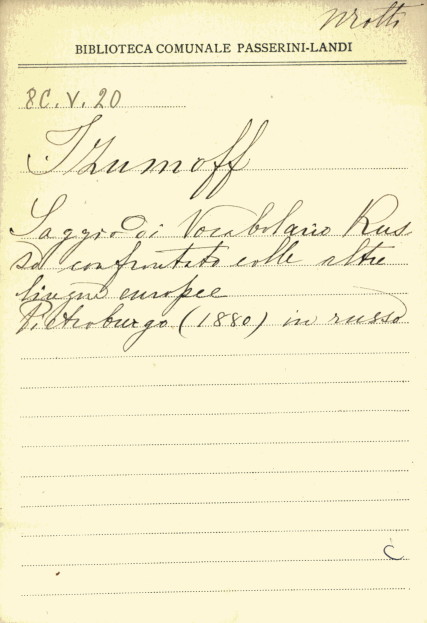 BIBLIOTECA COMUNALE PASSERINI-LANDI
8C.V.20
Izumoff
Saggio di Vocabolario Rus-
so confrontato colle altre
lingue europee
Pietroburgo (1880) in russo
C